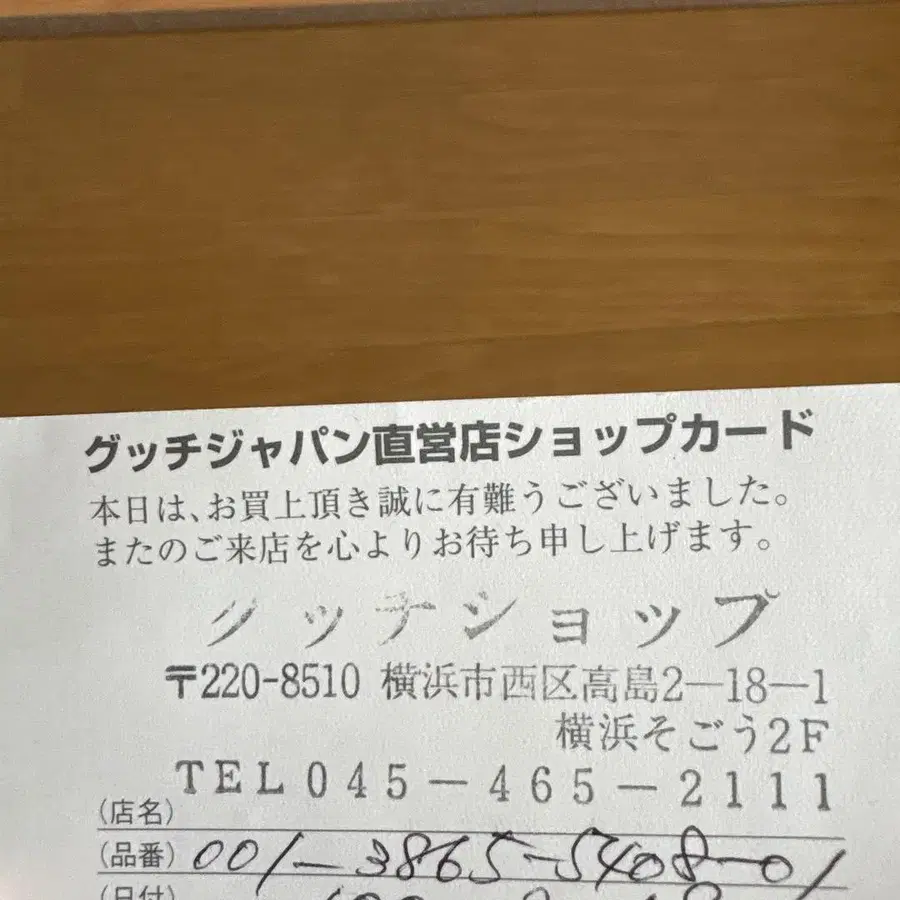 グッチジャパン直営店ショップカード
本日は、お買上頂き誠に有難うございました。
またのご来店を心よりお待ち申し上げます。
グッチショップ
〒220-8510 横浜市西区高島2―18―1
横浜そごう2F
TEL 045－465－2111
(店名)
(品番) 001-3865-5408-01
(日付)